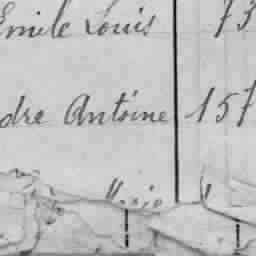 Emile Louis 73
dre Antoine 157